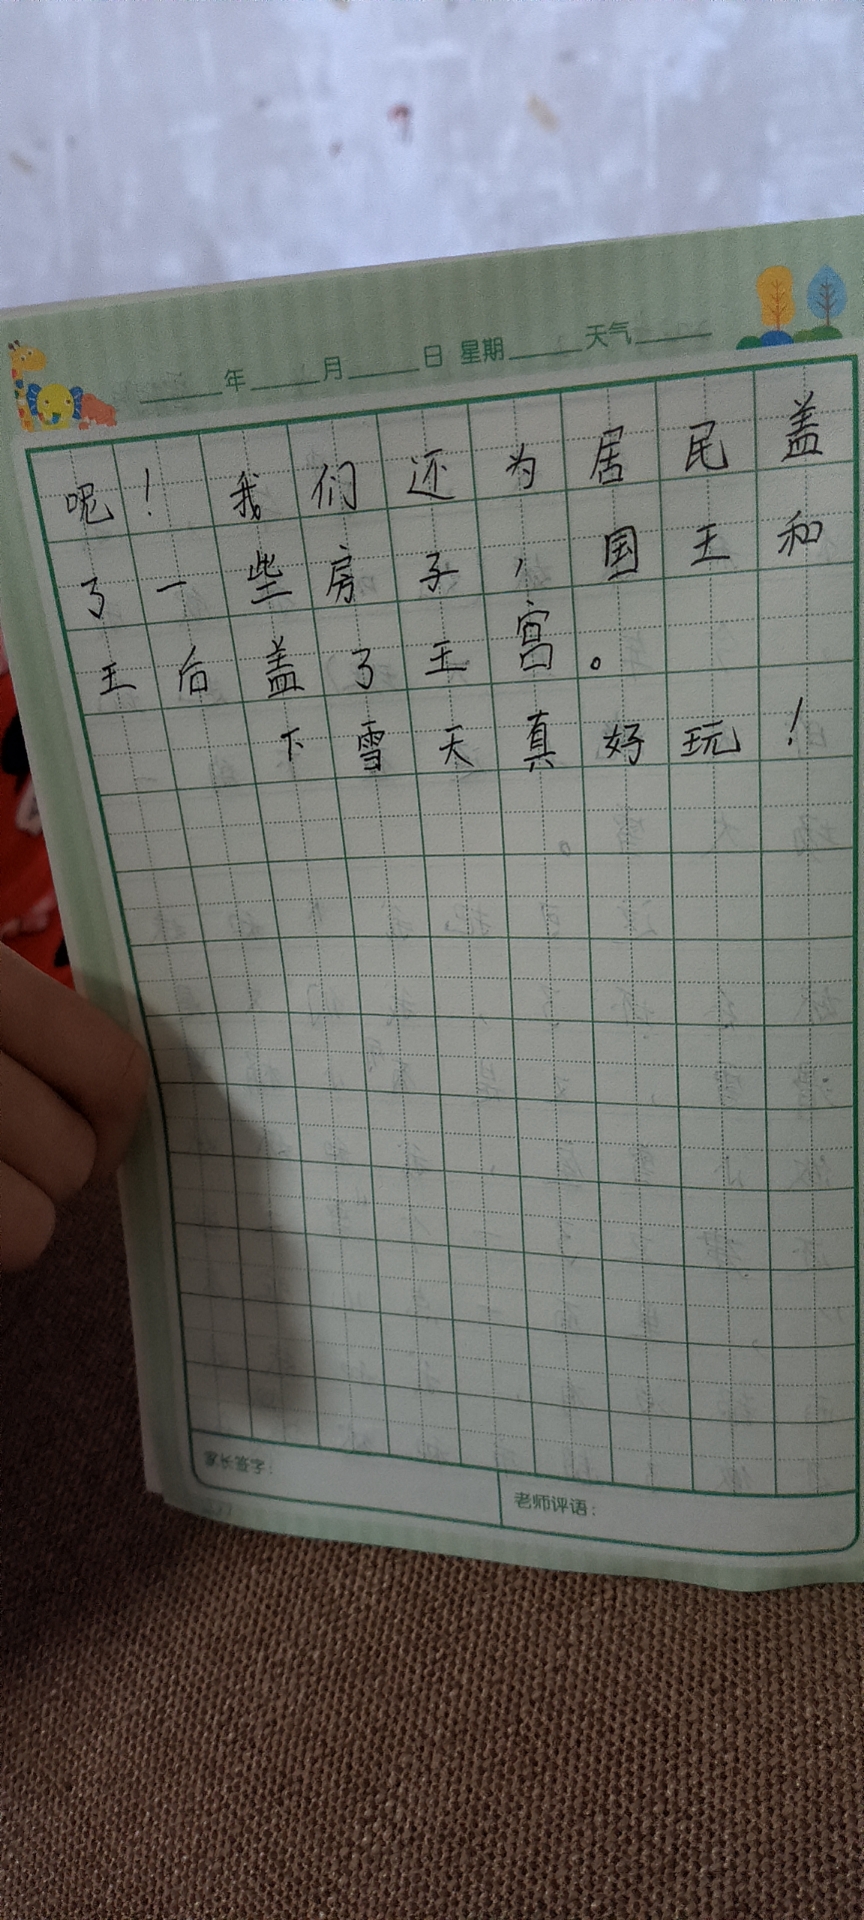 年 月 日 星期 天气
呢！我们还为居民盖
了一些房子，国王和
王后盖了王宫。
下雪天真好玩！
家长签字：
老师评语：